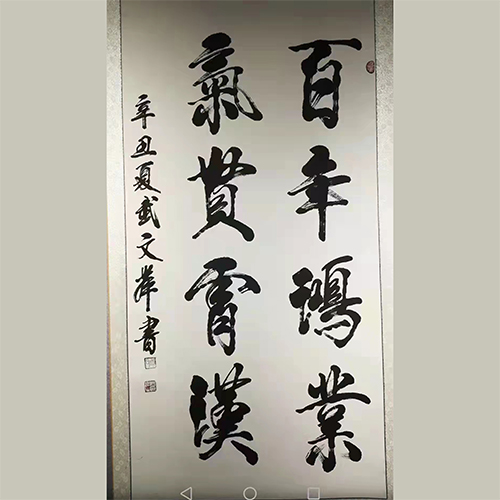 百年鴻業
氣貫霄漢
辛丑夏武文举書